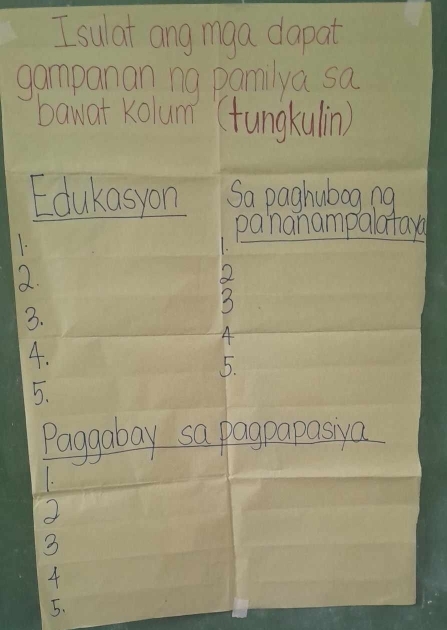 Isulat ang mga dapat
gampanan ng pamilya sa
bawat kolum (tungkulin)
Edukasyon
1.
2.
3.
4.
5.
Sa paghubog ng
pananampalataya
1.
2
3
4
5.
Paggabay sa pagpapasiya
1.
2
3
4
5.